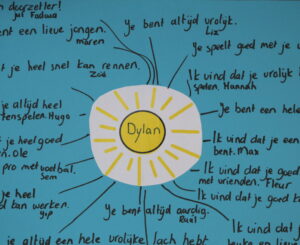 een doorzetter!
juf Fadwa
Je bent altijd vrolijk.
Liz
ent een lieve jongen.
maren
Je speelt goed met je
t je heel snel kan rennen.
Zoë
Ik vind dat je vrolijk
spelen. Hannah
je altijd heel
tenspelen. Hugo
Je bent een hele
Dylan
t je heel goed
en. Ole
Ik vind dat je een
bent. Max
pro met voetbal.
Sem
Ik vind dat je goed
met vrienden. Fleur
je heel
d kan werken.
Ik vind dat je goed k
Je bent altijd aardig.
Ik vind dat
je altijd een hele vrolijke lach hebt